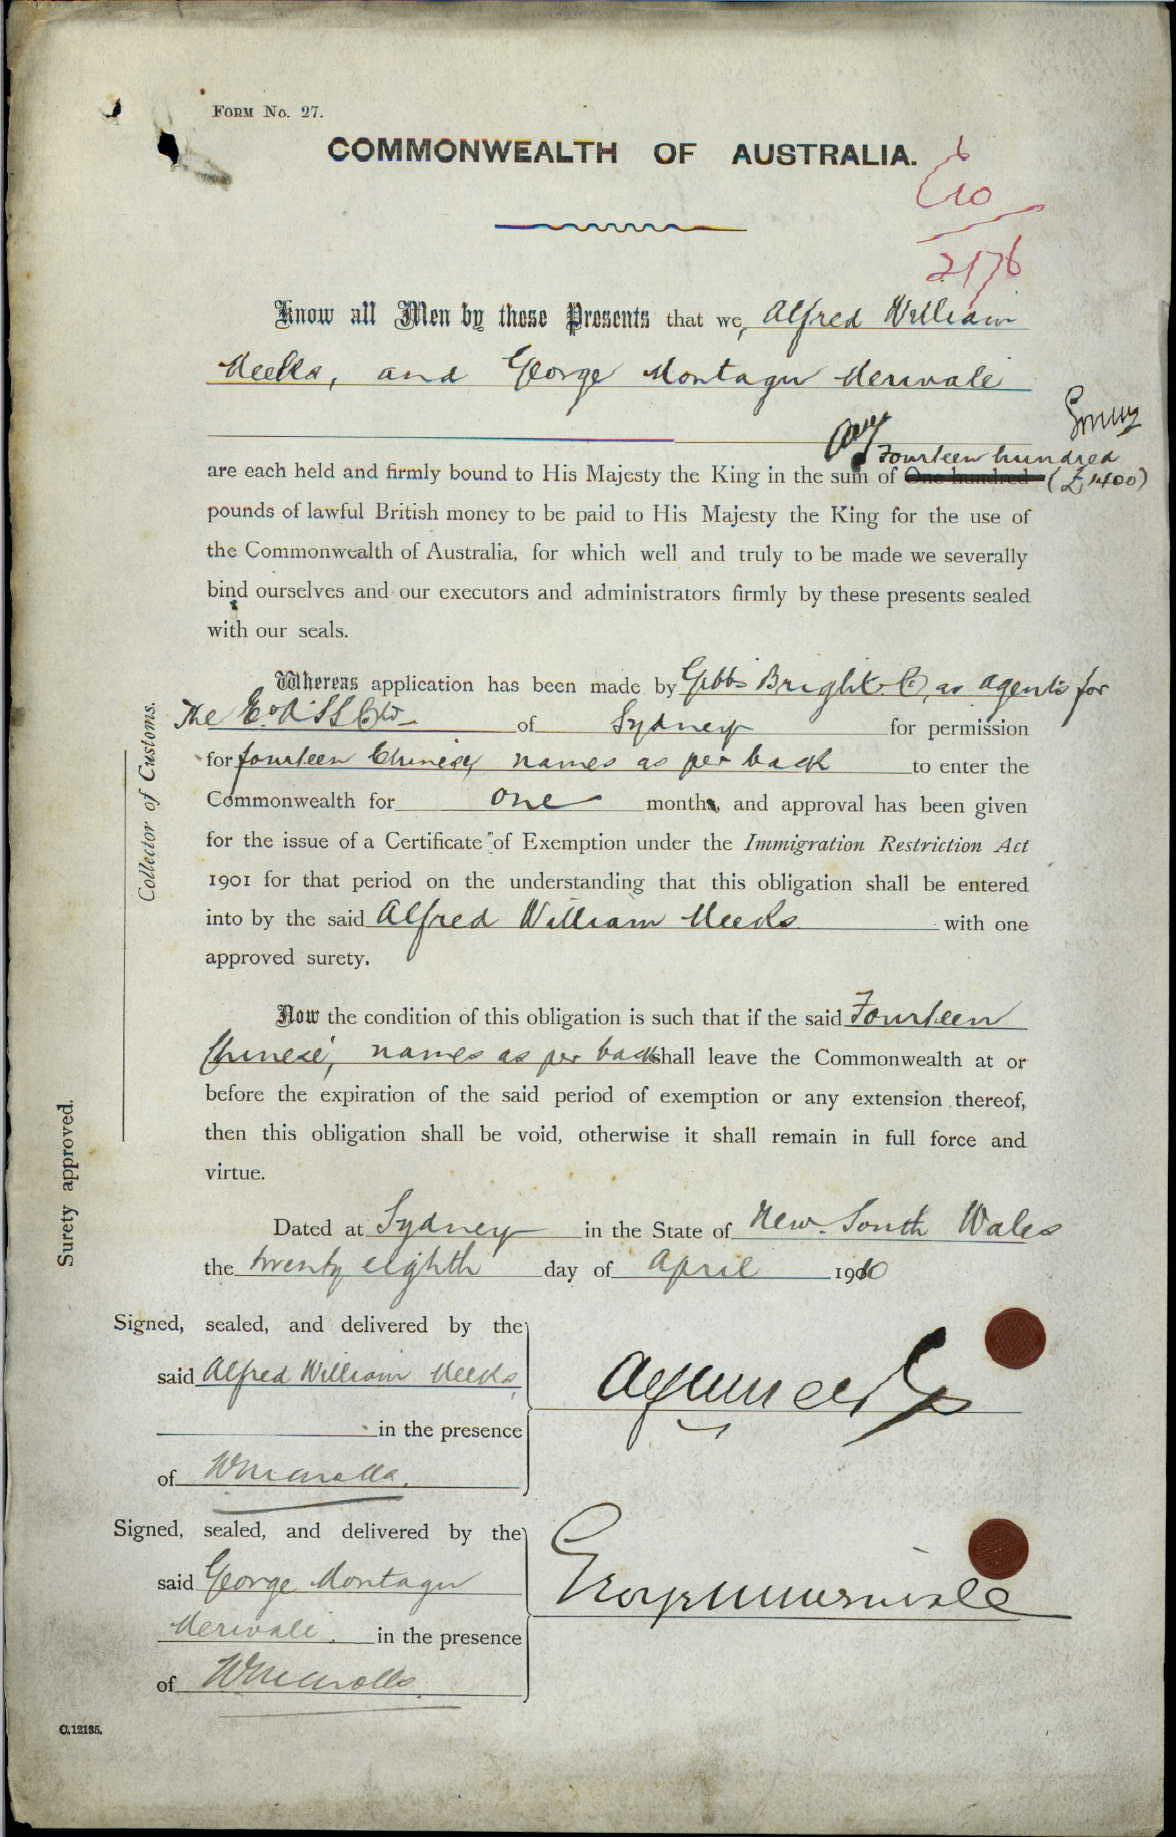 FORM NO. 27.
COMMONWEALTH OF AUSTRALIA.
10
2176
Know all Men by these Presents that we, Alfred William
Meeks, and George Montagu Merivale
are each held and firmly bound to His Majesty the King in the sum of One hundred Fourteen hundred (£1400)
pounds of lawful British money to be paid to His Majesty the King for the use of
the Commonwealth of Australia, for which well and truly to be made we severally
bind ourselves and our executors and administrators firmly by these presents sealed
with our seals.
Whereas application has been made by Gibbs Bright & Co, as agents for
The E. & A. S S Co Ltd of Sydney for permission
for fourteen Chinese, names as per back to enter the
Commonwealth for one month, and approval has been given
for the issue of a Certificate of Exemption under the Immigration Restriction Act
1901 for that period on the understanding that this obligation shall be entered
into by the said Alfred William Meeks with one
approved surety.
Now the condition of this obligation is such that if the said Fourteen
Chinese, names as per back shall leave the Commonwealth at or
before the expiration of the said period of exemption or any extension thereof,
then this obligation shall be void, otherwise it shall remain in full force and
virtue.
Dated at Sydney in the State of New South Wales
the twenty eighth day of April 1910
Signed, sealed, and delivered by the
said Alfred William Meeks,
in the presence
of
Signed, sealed, and delivered by the
said George Montagu
Merivale. in the presence
of
George Merivale
Surety approved.
Collector of Customs.
C.12185.